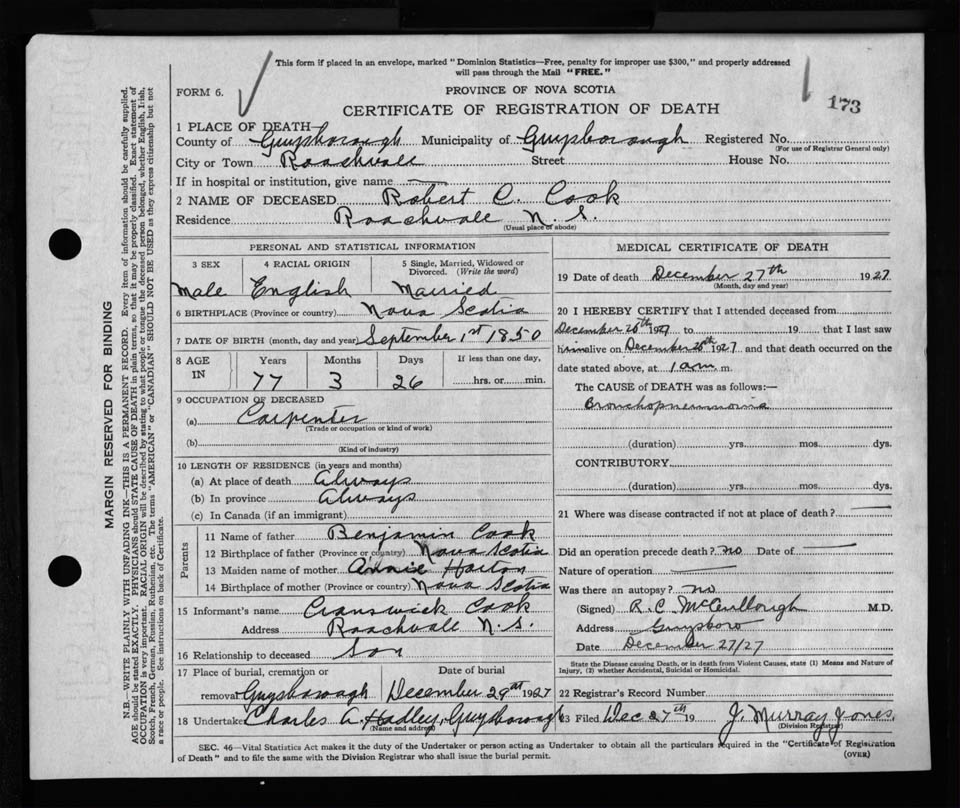 This form if placed in an envelope, marked "Dominion Statistics—Free, penalty for improper use $300," and properly addressed
will pass through the Mail "FREE."
FORM 6.
PROVINCE OF NOVA SCOTIA
CERTIFICATE OF REGISTRATION OF DEATH
173
1 PLACE OF DEATH—
County of Guysborough Municipality of Guysborough Registered No.
(For use of Registrar General only)
City or Town Roachvale Street House No.
If in hospital or institution, give name
2 NAME OF DECEASED Robert C. Cook
Residence Roachvale N.S.
(Usual place of abode)
PERSONAL AND STATISTICAL INFORMATION
3 SEX 4 RACIAL ORIGIN 5 Single, Married, Widowed or Divorced. (Write the word)
Male English Married
6 BIRTHPLACE (Province or country) Nova Scotia
7 DATE OF BIRTH (month, day and year) September 1st 1850
8 AGE IN Years Months Days If less than one day,
77 3 26 hrs. or min.
9 OCCUPATION OF DECEASED
(a) Carpenter
(Trade or occupation or kind of work)
(b)
(Kind of industry)
10 LENGTH OF RESIDENCE (in years and months)
(a) At place of death Always
(b) In province Always
(c) In Canada (if an immigrant)
Parents
11 Name of father Benjamin Cook
12 Birthplace of father (Province or country) Nova Scotia
13 Maiden name of mother Annie Horton
14 Birthplace of mother (Province or country) Nova Scotia
15 Informant's name Cranswick Cook
Address Roachvale N.S.
16 Relationship to deceased Son
17 Place of burial, cremation or Date of burial
removal Guysborough December 29th 1927
18 Undertaker Charles A. Hadley, Guysborough
(Name and address)
MEDICAL CERTIFICATE OF DEATH
19 Date of death December 27th 1927
(Month, day and year)
20 I HEREBY CERTIFY that I attended deceased from
December 26th 1927 to 19 that I last saw
him alive on December 26th 1927 and that death occurred on the
date stated above, at 1 am m.
The CAUSE of DEATH was as follows:—
Bronchopneumonia
(duration) yrs. mos. dys.
CONTRIBUTORY
(duration) yrs. mos. dys.
21 Where was disease contracted if not at place of death?
Did an operation precede death? no Date of
Nature of operation
Was there an autopsy? no
(Signed) R.C. McCullough M.D.
Address Guysboro
Date December 27/27
State the Disease causing Death, or in death from Violent Causes, state (1) Means and Nature of
Injury, (2) whether Accidental, Suicidal or Homicidal.
22 Registrar's Record Number
23 Filed Dec 27th 19 J. Murray Jones
(Division Registrar)
SEC. 46—Vital Statistics Act makes it the duty of the Undertaker or person acting as Undertaker to obtain all the particulars required in the "Certificate of Registration
of Death" and to file the same with the Division Registrar who shall issue the burial permit.
(OVER)
MARGIN RESERVED FOR BINDING
N.B.—WRITE PLAINLY WITH UNFADING INK—THIS IS A PERMANENT RECORD. Every item of information should be carefully supplied.
AGE should be stated EXACTLY. PHYSICIANS should STATE CAUSE OF DEATH in plain terms, so that it may be properly classified. Exact statement of
OCCUPATION is very important. RACIAL ORIGIN will be described by stating to what people or tongue the deceased person belonged, whether English, Irish,
Scotch, French, German, Russian, Ruthenian, etc. The terms "AMERICAN" or "CANADIAN" SHOULD NOT BE USED as they express citizenship but not
a race or people. See instructions on back of Certificate.